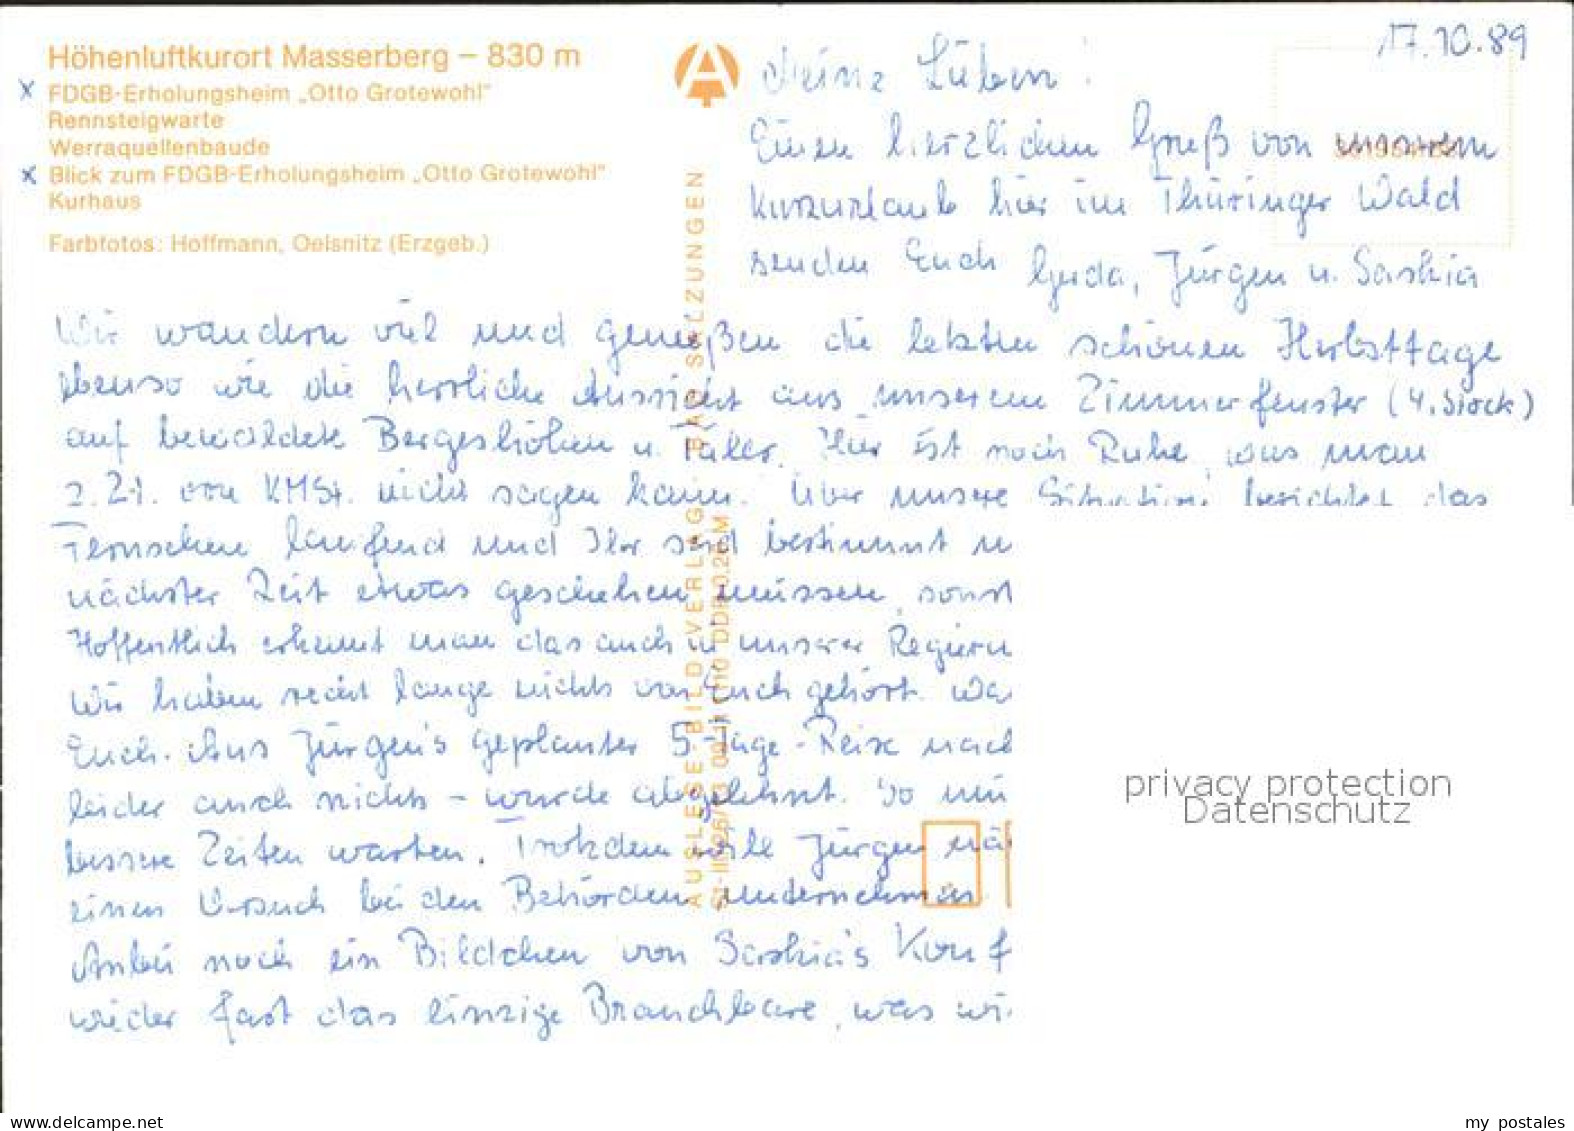 17.10.89
Höhenluftkurort Masserberg – 830 m
x FDGB-Erholungsheim „Otto Grotewohl"
Rennsteigwarte
Werraquellenbaude
x Blick zum FDGB-Erholungsheim „Otto Grotewohl"
Kurhaus
Farbfotos: Hoffmann, Oelsnitz (Erzgeb.)
Meine Lieben!
Einen herzlichen Gruß von unserem
Kurzurlaub hier im Thüringer Wald
senden Euch Gerda, Jürgen u. Saskia
Wir wandern viel und genießen die letzten schönen Herbsttage
ebenso wie die herrliche Aussicht aus unserem Zimmerfenster (4. Stock)
auf bewaldete Bergeshöhen u. Täler. Hier ist noch Ruhe, was man
z. Zt. von KMSt. nicht sagen kann. Über unsere Situation berichtet das
Fernsehen laufend und Ihr seid bestimmt
nächster Zeit etwas geschehen müssen, sonst
Hoffentlich erkennt man das auch in unserer Regieru
Wir haben recht lange nichts von Euch gehört. Wa
Euch. Aus Jürgen's geplanter 5-Tage-Reise nach
leider auch nichts – wurde abgelehnt. So mü
bessere Zeiten warten. Trotzdem will Jürgen nä
einen Versuch bei den Behörden unternehmen
Anbei noch ein Bildchen von Saskia's Konf
wieder fast das einzige Brauchbare, was wi
AUSLESE-BILD-VERLAG BAD SALZUNGEN
privacy protection
Datenschutz
www.delcampe.net
my_postales